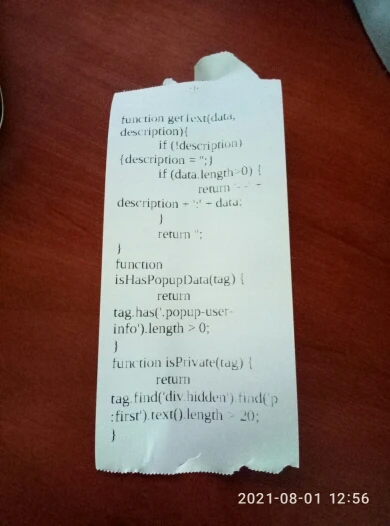 function getText(data,
description){
if (!description)
{description = '';}
if (data.length>0) {
return '- -' +
description + ':' + data;
}
return '';
}
function
isHasPopupData(tag) {
return
tag.has('.popup-user-
info').length > 0;
}
function isPrivate(tag) {
return
tag.find('div.hidden').find('p
:first').text().length > 20;
}
2021-08-01 12:56